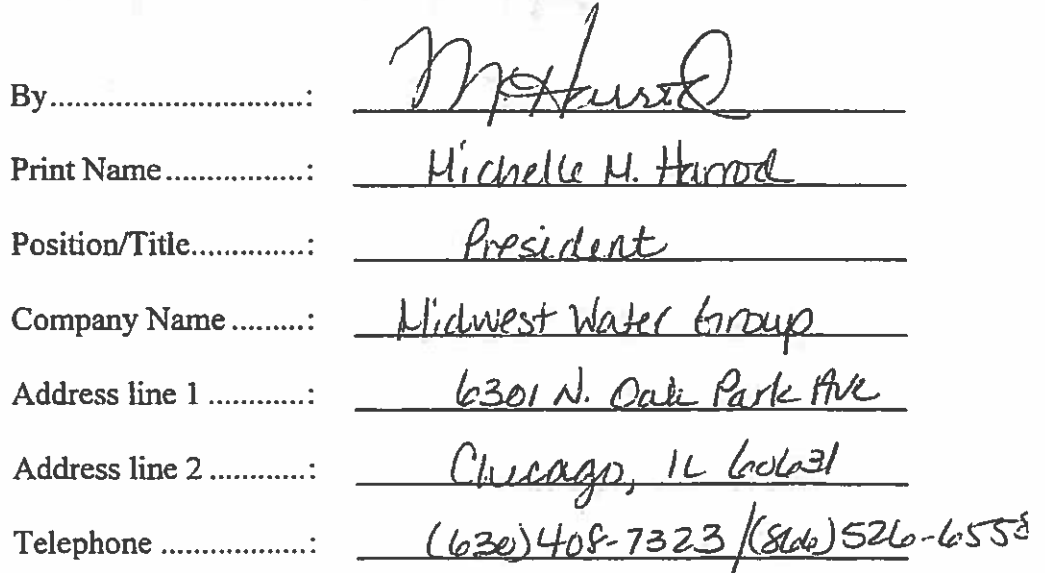 By............................: M. Harrod
Print Name.................: Michelle M. Harrod
Position/Title..............: President
Company Name.........: Midwest Water Group
Address line 1............: 6301 N. Oak Park Ave
Address line 2............: Chicago, IL 60631
Telephone..................: (630)408-7323/(866)526-6558